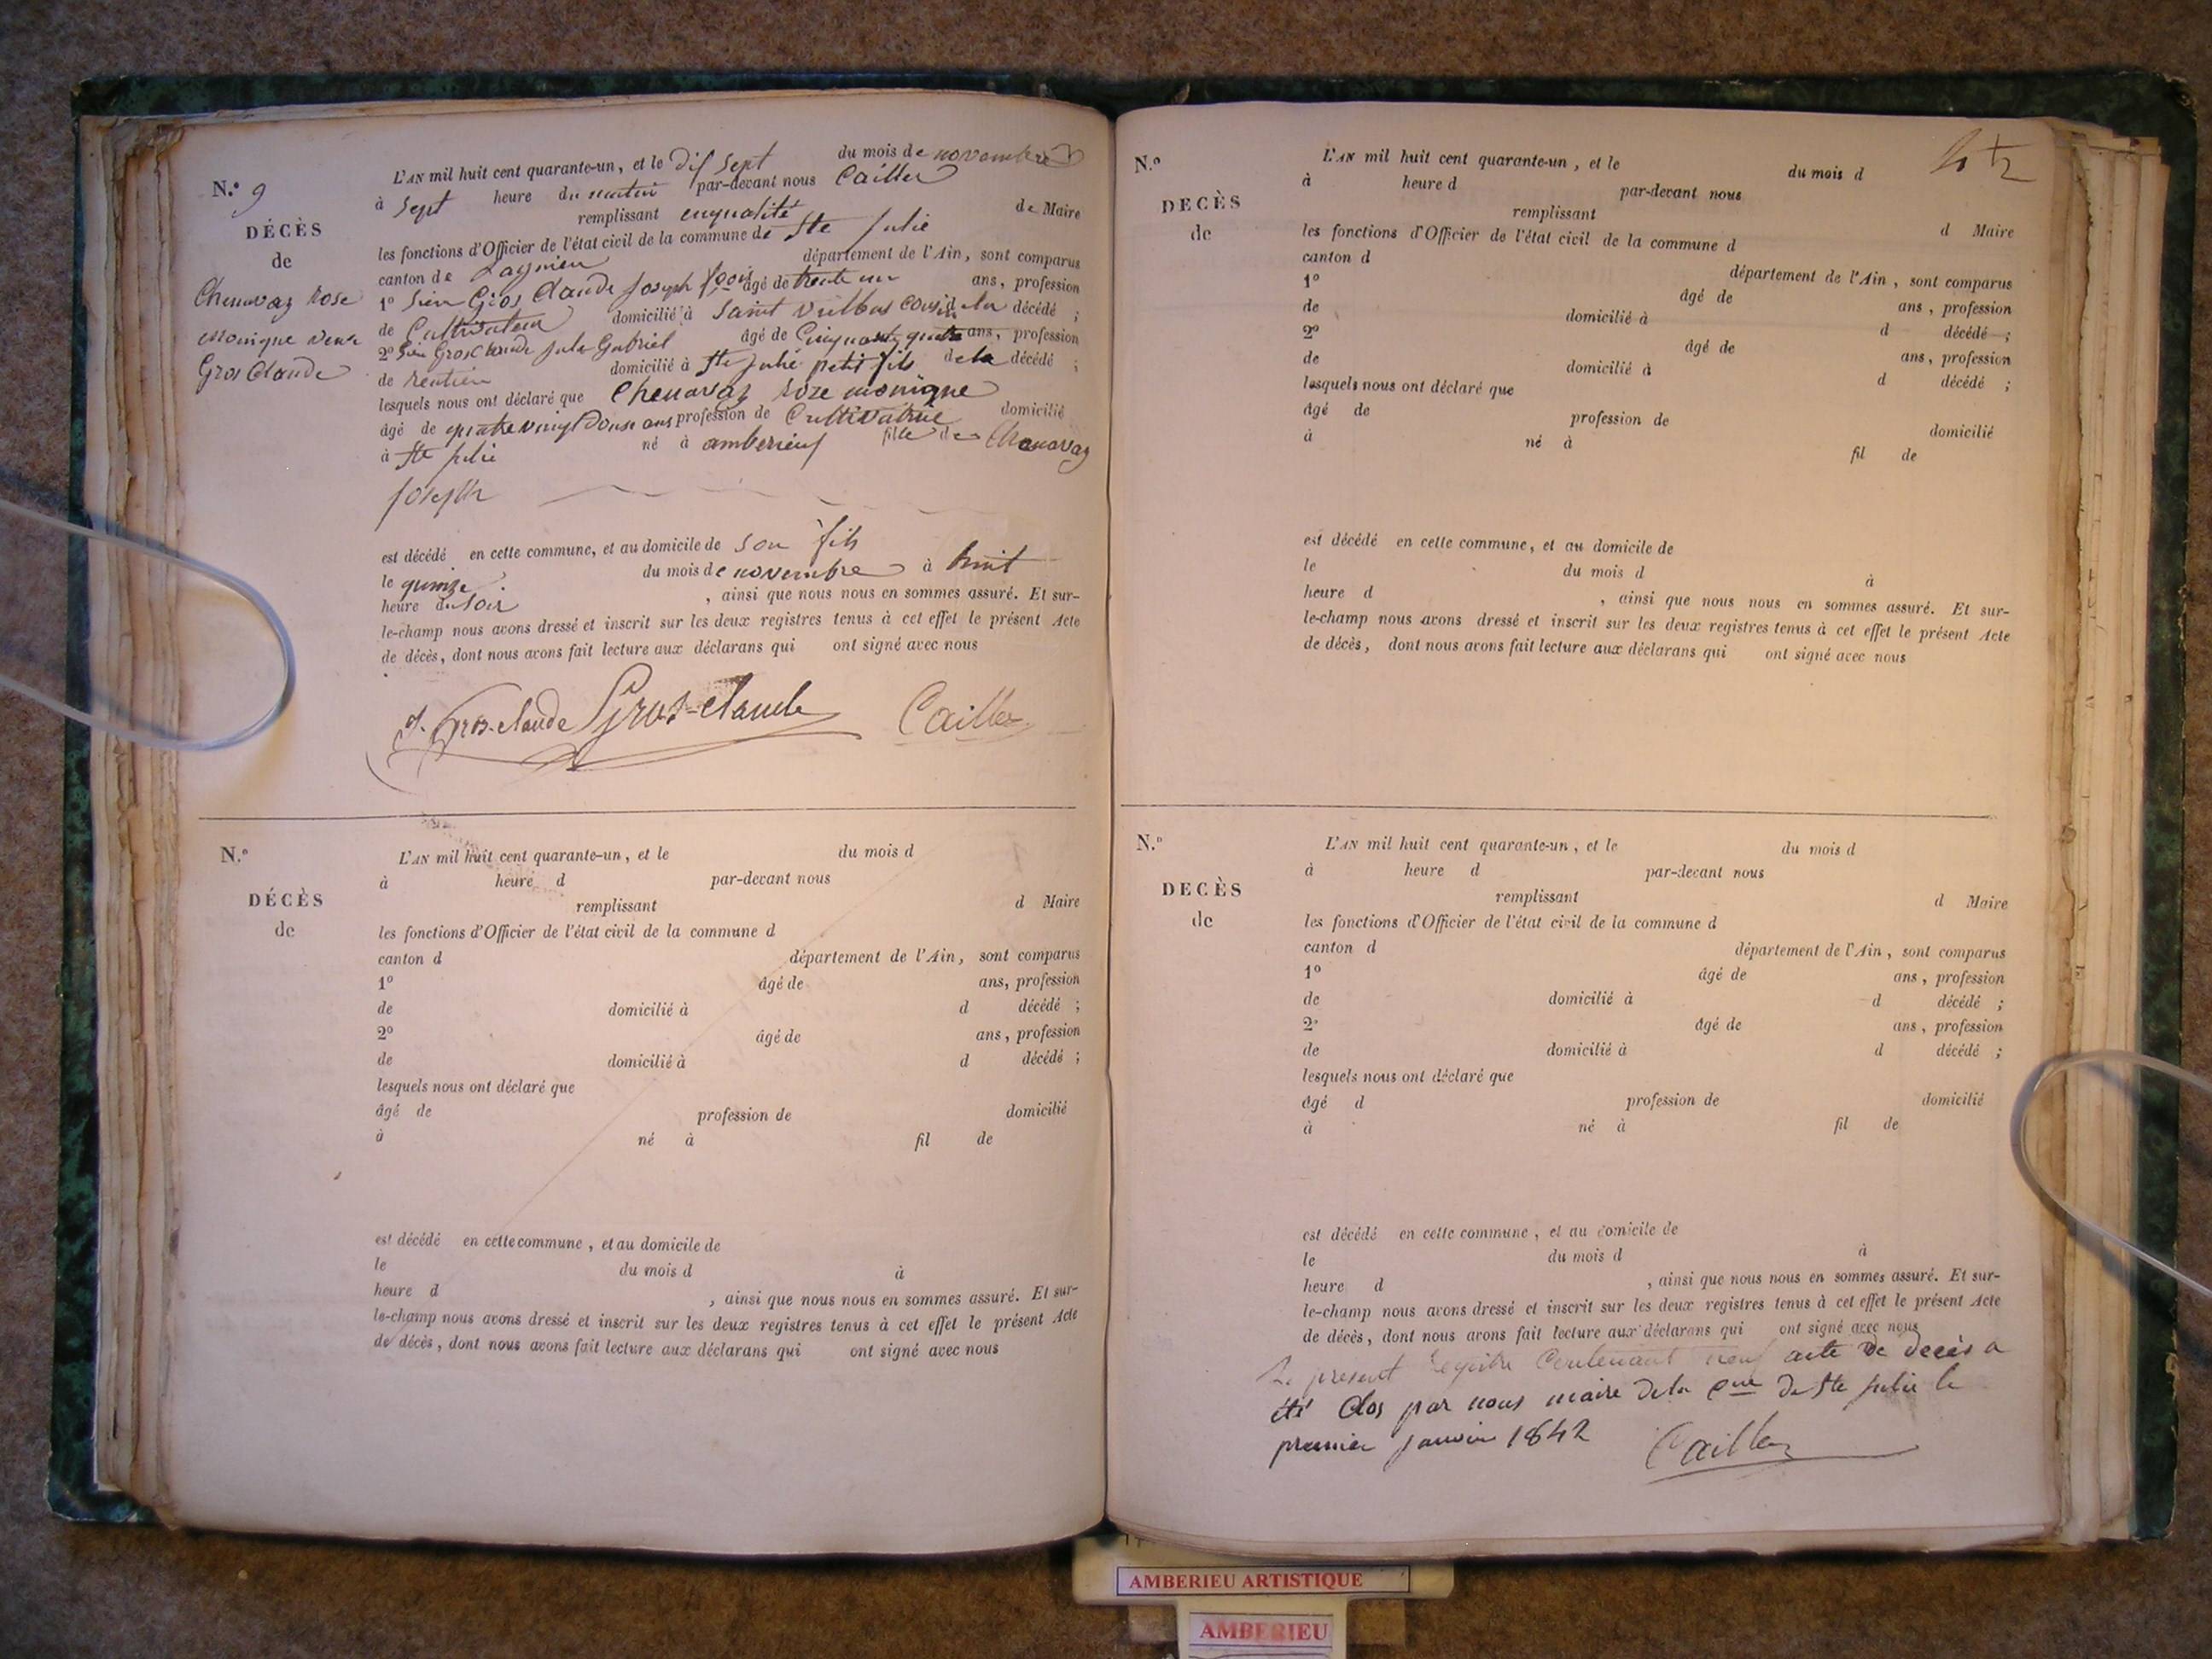 N.º 9
DÉCÈS
de
Chenavaz Rose
monique veuve
Gros Claude
L'AN mil huit cent quarante-un, et le dix Sept du mois de novembre
à Sept heure du matin par-devant nous Cailler
remplissant enqualité de Maire
les fonctions d'Officier de l'état civil de la commune de Ste Julie
canton de Lagnieu département de l'Ain, sont comparus
1º Sieur Gros Claude Joseph fçois âgé de trente un ans, profession
de Cultivateur domicilié à Saint Vulbas de la décédé ;
2º Sieur Gros Claude Jule Gabriel âgé de Cinquante quatre ans, profession
de rentier domicilié à Ste Julie petit fils de la décédé ;
lesquels nous ont déclaré que Chenavaz Roze monique
âgé de quatre vingt Douse ans profession de Cultivatrice domicilié
à Ste Julie né à amberieux fille de Chenavaz
Joseph
est décédé en cette commune, et au domicile de son fils
le quinze du mois de novembre à huit
heure du soir , ainsi que nous nous en sommes assuré. Et sur-
le-champ nous avons dressé et inscrit sur les deux registres tenus à cet effet le présent Acte
de décès, dont nous avons fait lecture aux déclarans qui ont signé avec nous
J. Gros-claude Gros-claude Cailler
N.º
DÉCÈS
de
L'AN mil huit cent quarante-un, et le du mois d
à heure d par-devant nous
remplissant d Maire
les fonctions d'Officier de l'état civil de la commune d
canton d département de l'Ain, sont comparus
1º âgé de ans, profession
de domicilié à d décédé ;
2º âgé de ans, profession
de domicilié à d décédé ;
lesquels nous ont déclaré que
âgé de profession de domicilié
à né à fil de
est décédé en cette commune, et au domicile de
le du mois d à
heure d , ainsi que nous nous en sommes assuré. Et sur-
le-champ nous avons dressé et inscrit sur les deux registres tenus à cet effet le présent Acte
de décès, dont nous avons fait lecture aux déclarans qui ont signé avec nous
N.º
DECÈS
de
L'AN mil huit cent quarante-un, et le du mois d
à heure d par-devant nous
remplissant d Maire
les fonctions d'Officier de l'état civil de la commune d
canton d département de l'Ain, sont comparus
1º âgé de ans, profession
de domicilié à d décédé ;
2º âgé de ans, profession
de domicilié à d décédé ;
lesquels nous ont déclaré que
âgé de profession de domicilié
à né à fil de
est décédé en cette commune, et au domicile de
le du mois d à
heure d , ainsi que nous nous en sommes assuré. Et sur-
le-champ nous avons dressé et inscrit sur les deux registres tenus à cet effet le présent Acte
de décès, dont nous avons fait lecture aux déclarans qui ont signé avec nous
N.º
DECÈS
de
L'AN mil huit cent quarante-un, et le du mois d
à heure d par-devant nous
remplissant d Maire
les fonctions d'Officier de l'état civil de la commune d
canton d département de l'Ain, sont comparus
1º âgé de ans, profession
de domicilié à d décédé ;
2º âgé de ans, profession
de domicilié à d décédé ;
lesquels nous ont déclaré que
âgé d profession de domicilié
à né à fil de
est décédé en cette commune, et au domicile de
le du mois d à
heure d , ainsi que nous nous en sommes assuré. Et sur-
le-champ nous avons dressé et inscrit sur les deux registres tenus à cet effet le présent Acte
de décès, dont nous avons fait lecture aux déclarans qui ont signé avec nous
Le present registre Contenant neuf acte de decès a
été Clos par nous maire de la Cne de Ste Julie le
premier janvier 1842 Cailler
AMBERIEU ARTISTIQUE
AMBERIEU